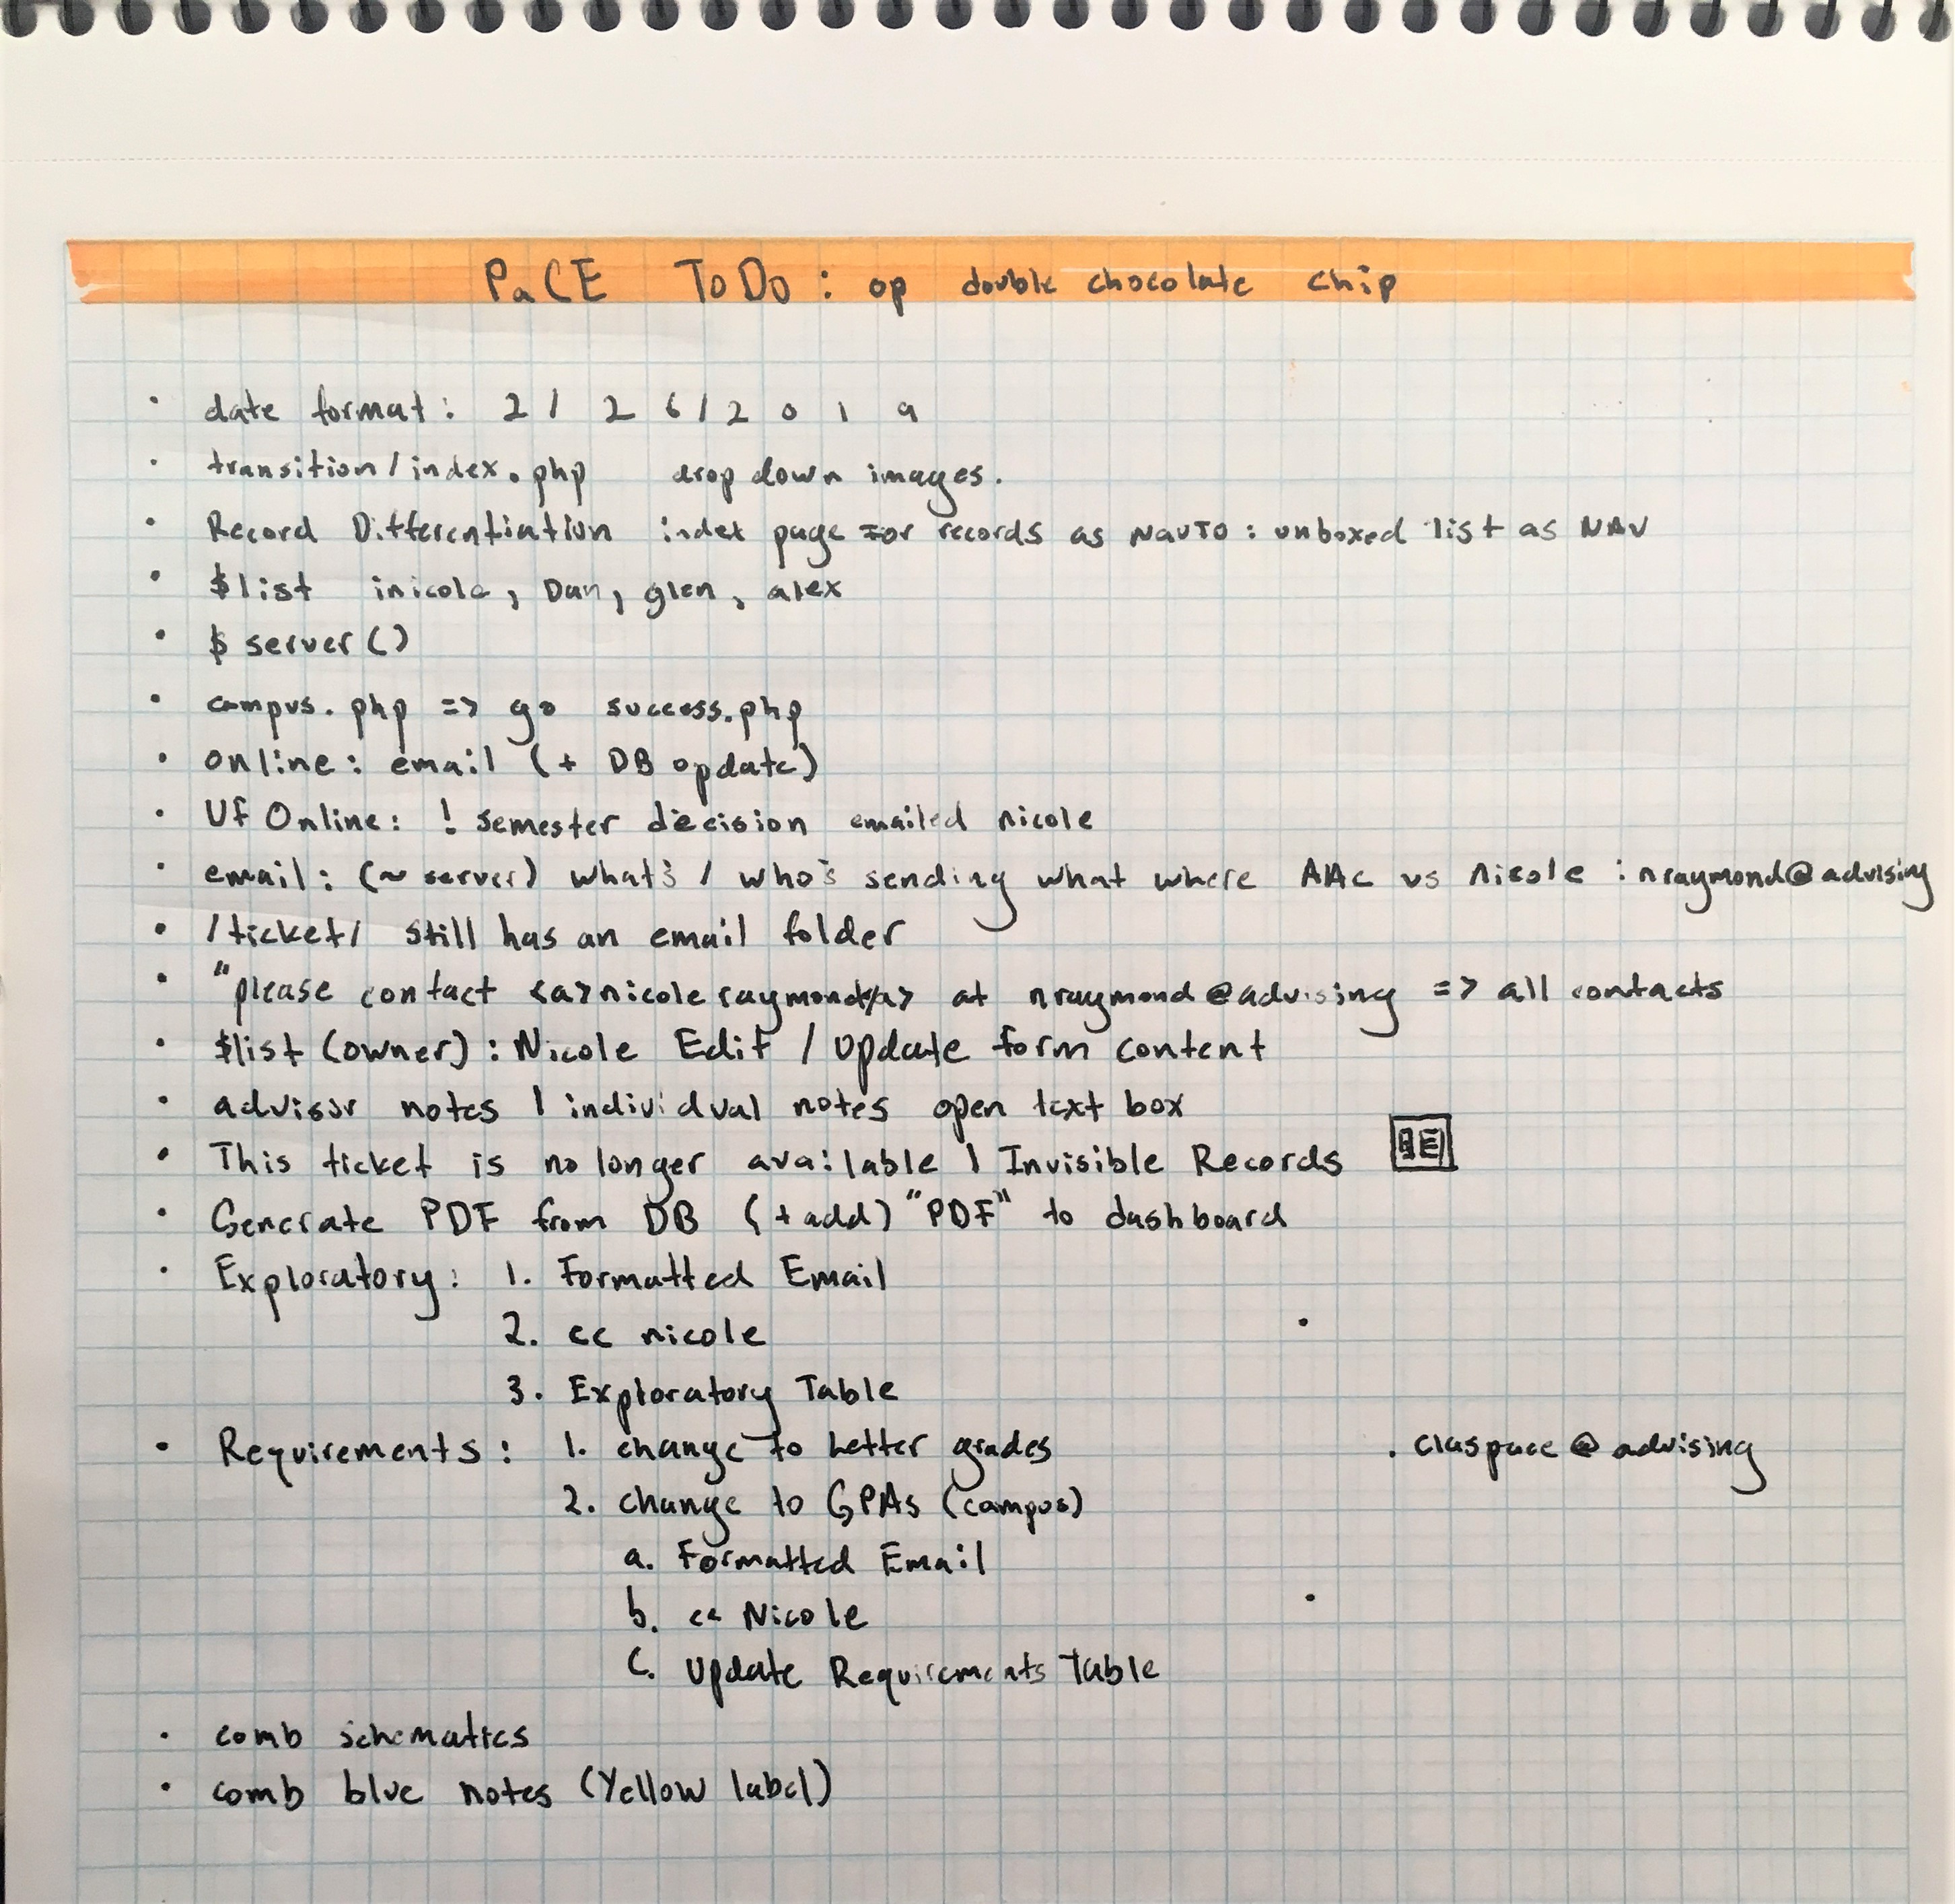 PaCE ToDo: op double chocolate chip
· date format: 2/26/2019
· transition/index.php drop down images.
· Record Differentiation index page For records as NavTO: unboxed list as NAV
· $list inicole, Dan, glen, alex
· $server()
· campus.php => go success.php
· online: email (+ DB update)
· Uf Online: ! semester decision emailed nicole
· email: (~ server) what's / who's sending what where AAC vs Nicole : nraymond@advising
· /ticket/ still has an email folder
· "please contact <a>nicole raymond</a> at nraymond@advising => all contacts
· $list (owner): Nicole Edit / Update form content
· advisor notes | individual notes open text box
· This ticket is no longer available | Invisible Records
· Generate PDF from DB (+add) "PDF" to dashboard
· Exploratory: 1. Formatted Email
2. cc nicole
3. Exploratory Table
· Requirements: 1. change to letter grades · claspace@advising
2. change to GPAs (campus)
a. Formatted Email
b. cc Nicole
c. Update Requirements Table
· comb schematics
· comb blue notes (Yellow label)